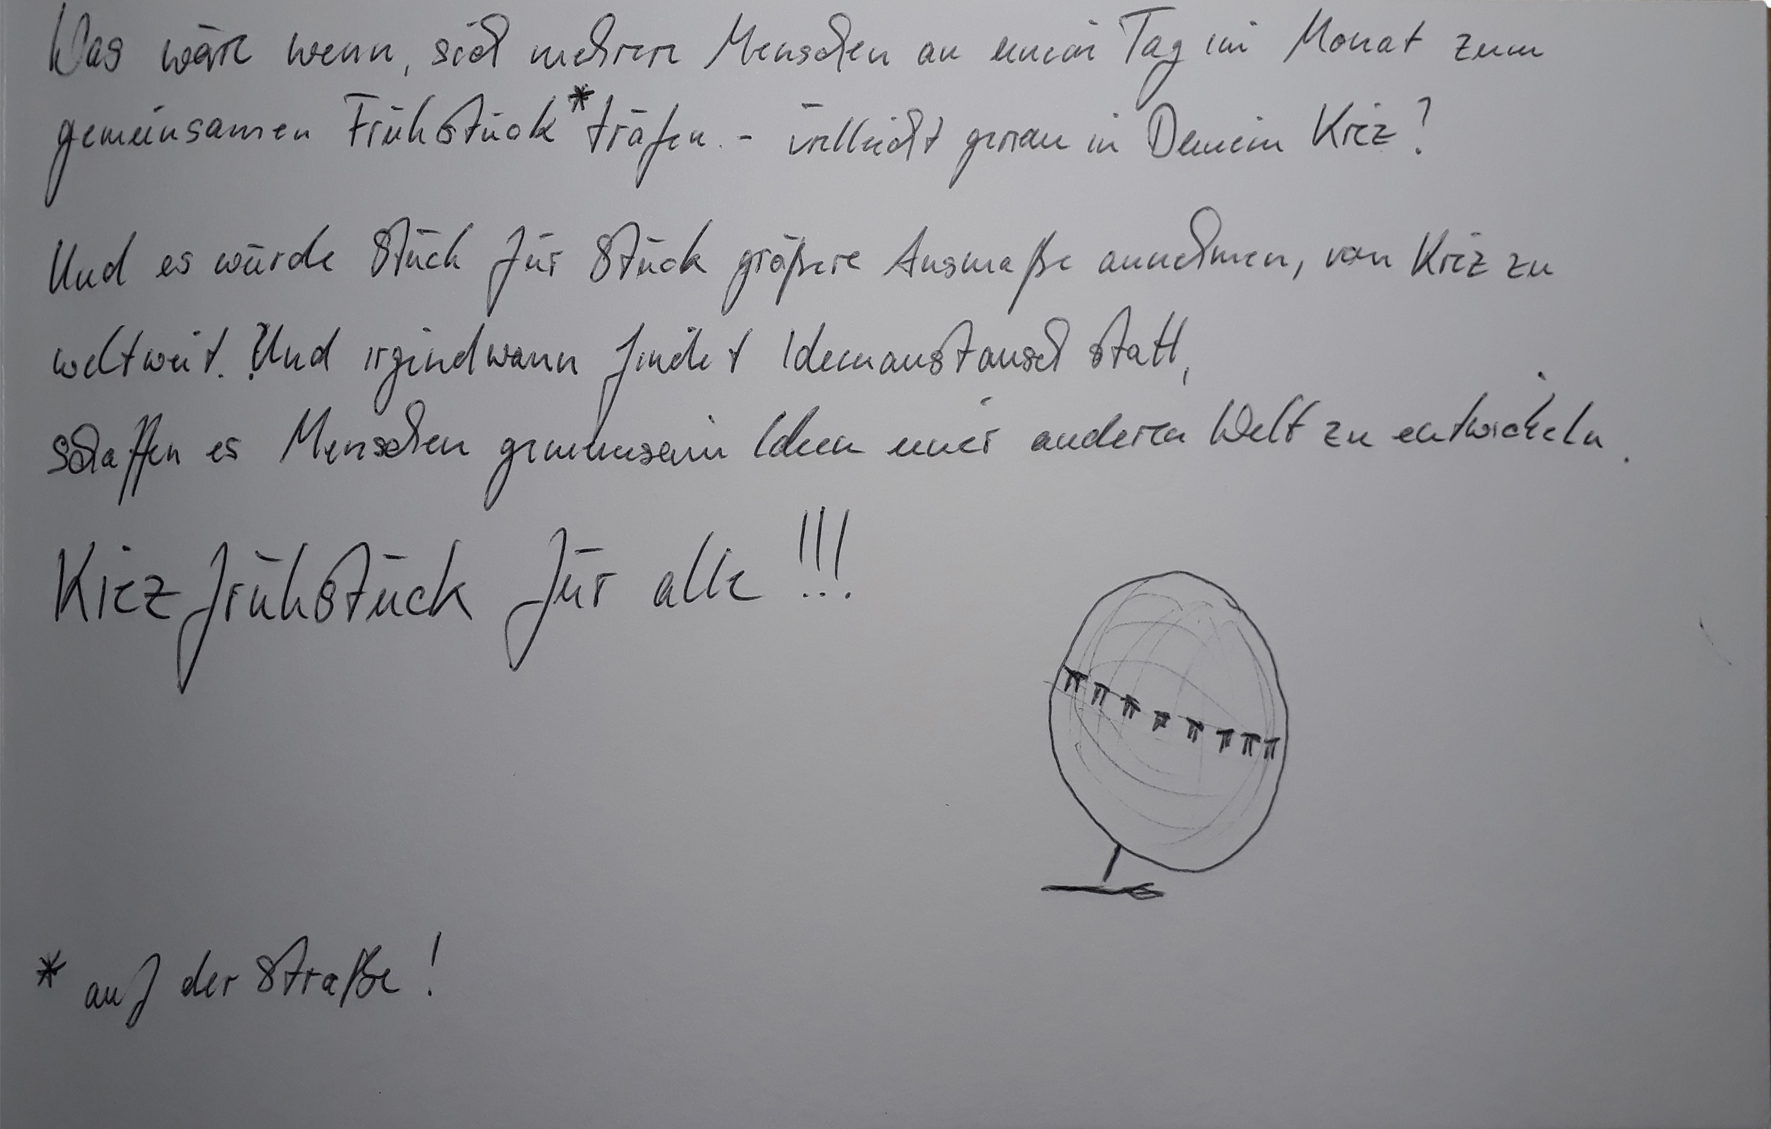 Was wäre wenn, sich mehrere Menschen an einem Tag im Monat zum
gemeinsamen Frühstück* träfen - vielleicht genau in Deinem Kiez?
Und es würde Stück für Stück größere Ausmaße annehmen, von Kiez zu
weltweit. Und irgendwann findet Ideenaustausch statt,
schaffen es Menschen gemeinsam Ideen einer anderen Welt zu entwickeln.
Kiezfrühstück für alle!!!
* auf der Straße!